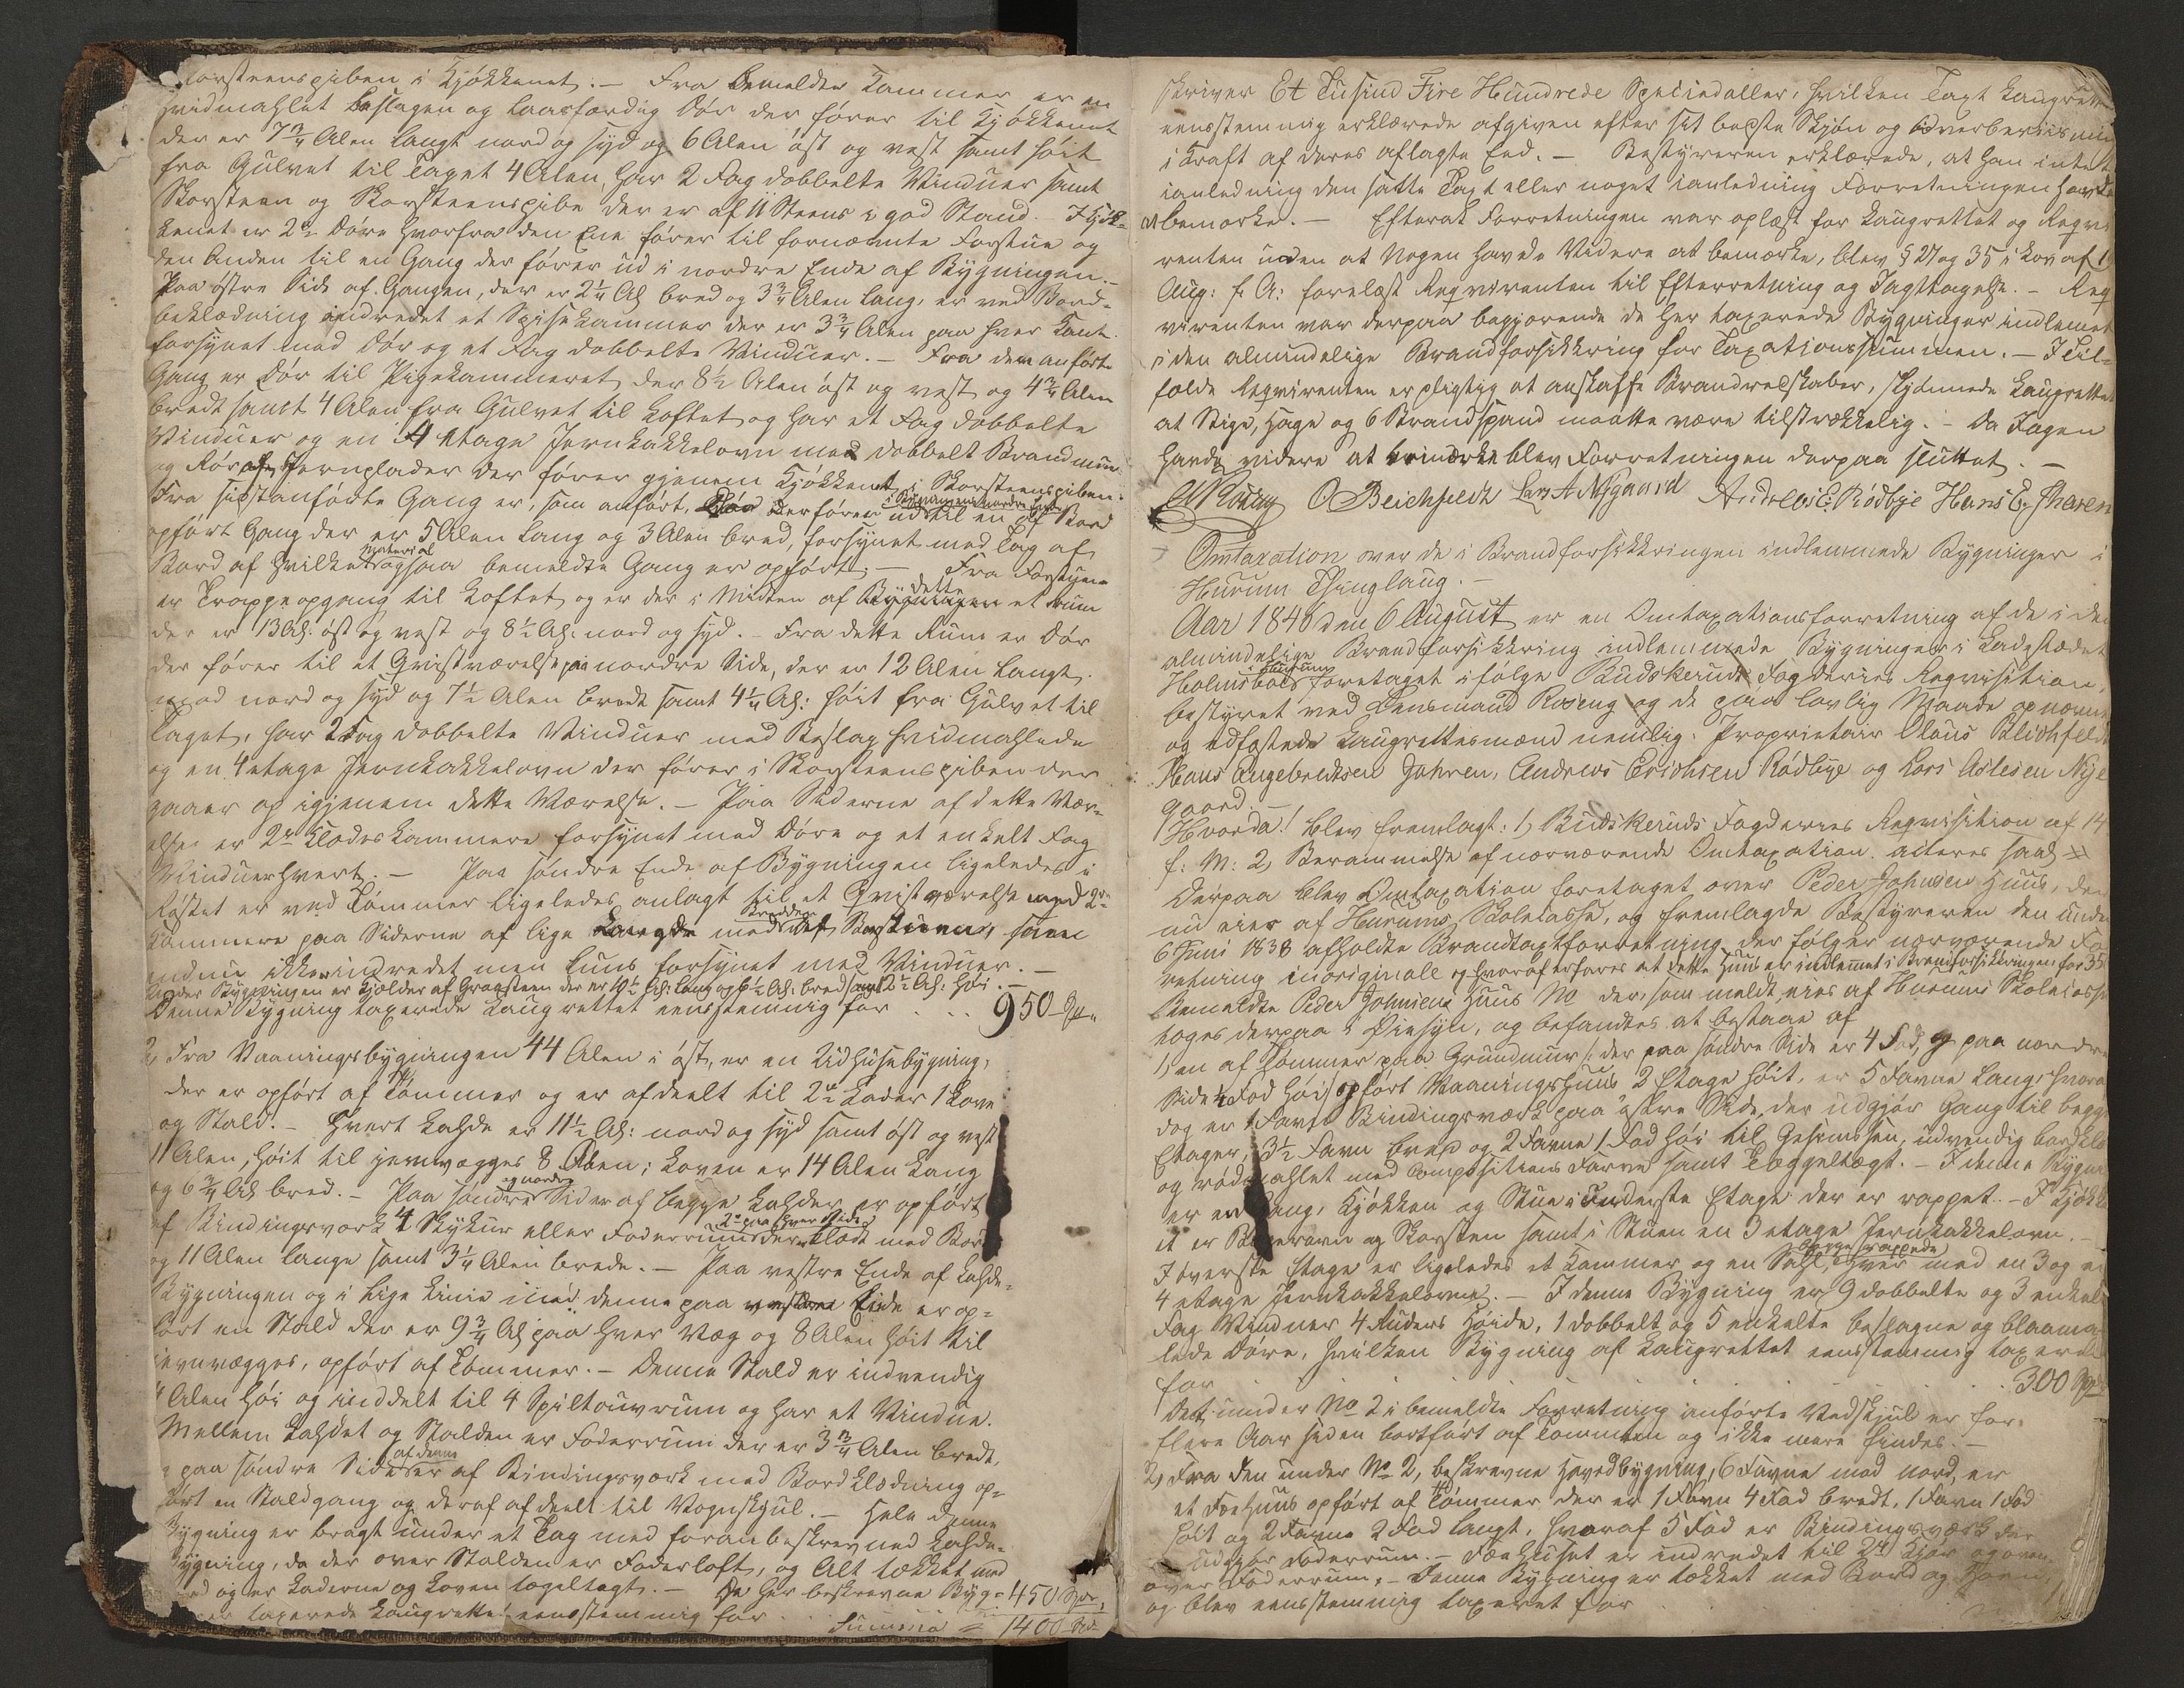 Skorsteenspiben i Kjøkkenet. – Fra bemeldte Kammer er en
hvidmahlet beslagen og laasfærdig Dør der fører til Kjøkkenet
der er 7 3/4 Alen langt nord og syd og 6 Alen øst og vest samt høit
fra Gulvet til Taget 4 Alen, har 2 Fag dobbelte Vinduer samt
Skorsteen og Skorsteenspibe der er af 11 Steens i god Stand. – I Kjøk-
kenet er 2de Døre hvorfra den Ene fører til fornævnte Forstue og
den Anden til en Gang der fører ud i nordre Ende af Bygningen. –
Paa østre Side af Gangen, der er 2 1/4 Al: bred og 3 3/4 Alen lang, er ved Bord-
beklædning indredet et Spisekammer der er 3 3/4 Alen paa hver Kant
forsynet med Dør og et Fag dobbelte Vinduer. – Fra den anførte
Gang er Dør til Pigekammeret, der 8 1/2 Alen øst og vest og 4 3/4 Alen
bredt samt 4 Alen fra Gulvet til Loftet og har et Fag dobbelte
Vinduer og en 4 etage Jernkakkelovn med dobbelt Brandmuur
og Rør af Jernplader der fører gjenem Kjøkkenet i Skorsteenspiben.
Fra sidstanførte Gang er, som anført, Dør der fører ud i Bygningens nordre Ende til en af Bord
opført Gang der er 5 Alen lang og 3 Alen bred, forsynet med Tag af
Bord af hvilket Material ogsaa bemeldte Gang er opført; – Fra Forstuen
er Trappeopgang til Loftet, og er der i Midten af dette et Rum
der er 13 Al: øst og vest og 8 1/2 Al: nord og syd. – Fra dette Rum er Dør
der fører til et Qvistværelse paa nordre Side, der er 12 Alen langt
nord og syd og 7 1/2 Alen bredt samt 4 1/4 Al: høit fra Gulvet til
Taget, har 2 Fag dobbelte Vinduer med Beslag hvidmahlede
og en 4 etage Jernkakkelovn der fører i Skorsteenspiben der
gaaer op igjenem dette Værelse. – Paa Siderne af dette Vær-
else er 2de Klædeskammere forsynet med Døre og et enkelt Fag
Vinduer hvert. – Paa søndre Ende af Bygningen ligeledes i
Røstet er ved Tømmer ligeledes anlagt til et Qvistværelse med 2de
Kammere paa Siderne af lige Længde med Bredden som
endnu ikke er indredet men kuns forsynet med Vinduer. –
Under Bygningen er Kjælder af Graasteen der er 10 1/2 Al: lang og 6 1/2 Al: bred samt 2 1/2 Al: høi. –
Denne Bygning taxerede Laugrettet eensstemmig for . . . 950 Spd
2, Fra Vaaningsbygningen 44 Alen i øst, er en Udhusebygning,
der er opført af Tømmer og er afdeelt til 2de Lader 1 Love
og Stald. – Hvert Lahde er 11 1/2 Al: nord og syd samt øst og vest
11 Alen, høit til jevnvægges 8 Alen; Loven er 14 Alen lang
og 6 3/4 Al: bred. – Paa søndre og nordre Sider af begge Lahder er opført
af Bindingsværk 4 Skykur eller Foderrum 2de paa hver Side der klædt med Bord
og 11 Alen lange samt 3 1/4 Alen brede. – Paa vestre Ende af Lahde-
Bygningen og i lige Linie med denne paa vestre Ende er op-
ført en Stald der er 9 3/4 Al: paa hver Væg og 8 Alen høit til
jevnvægges, opført af Tømmer. – Denne Stald er indvendig
4 Alen høi og inddelt til 4 Spiltouvrum og har et Vindue.
Mellem Lahdet og Stalden er Foderrum der er 3 3/4 Alen bredt,
og paa søndre Side af denne er af Bindingsværk med Bordklædning op-
ført en Staldgang og deraf afdeelt til Vognskjul. – Hele denne
Bygning er bragt under et Tag med foranbeskrevned Lahde-
bygning, da der over Stalden er Foderloft, og Alt tækket med
Bord og er Laderne og Loven tegeltagt. – De her beskrevne Byg- 450 Spd.
taxerede Laugrettet eensstemmig for . . Summa = 1400 Spd
skriver Et Tusind Fire Hundrede Speciedaller, hvilken Taxt Laugrettet
eensstemmig erklærede afgiven efter sit bedste Skjøn og Overbeviisning
i Kraft af deres aflagte Eed. – Bestyreren erklærede, at han intet
ianledning den satte Taxt eller noget ianledning Forretningen havde
at bemærke. – Efterat Forretningen var oplæst for Laugrettet og Reqvi-
renten uden at Nogen havde Videre at bemærke, blev § 27 og 35 i Lov af 19
Aug: f: A: forelæst Reqvirenten til Efterretning og Iagttagelse. – Req-
virenten var derpaa begjærende de her taxerede Bygninger indlemmet
i den almindelige Brandforsikkring for Taxationssummen. – I Til-
fælde Reqvirenten er pligtig at anskaffe Brandredskaber, skjønnede Laugrettet
at Stige, Hage og 6 Brandspand maatte være tilstrækkelig. – Da Ingen
havde videre at bemærke blev Forretningen derpaa sluttet. –
Rosing O Beichfeldt Lars A Nygaard Andreas E. Rødbye Hans E. Jhoren
Omtaxation over de i Brandforsikkringen indlemmede Bygninger i
Hurum Thinglaug. –
Aar 1846 den 6 August er en Omtaxationsforretning af de i den
almindelige Brandforsikkring indlemmede Bygninger i Ladestædet
Holmsboes i Hurum foretaget ifølge Budskeruds Fogderies Reqvisition,
bestyret ved Lensmand Rosing og de paa lovlig Maade opnævnte
og edfæstede Laugrettesmænd nemlig: Proprietair Olaus Blichfeldt
Hans Engebredtsen Jahren, Andreas Erichsen Rødbye og Lars Aslesen Nye
gaard. –
Hvorda! blev fremlagt: 1) Budskeruds Fogderies Reqvisition af 14
f: M: 2) Berammelse af nærværende Omtaxation. acteres saal
Derpaa blev Omtaxation foretaget over Peder Johnsens Huus, der
nu eies af Hurums Skolecasse, og fremlagde Bestyreren den under
6 Juni 1838 afholdte Brandtaxtforretning der følger nærværende For-
retning inoriginale og hvoraf erfares at dette Huus er indlemmet i Brandforsikkringen for 35
Bemeldte Peder Johnsens Huus No der, som meldt eies af Hurums Skolecasse
toges derpaa i Øiesyn, og befandtes at bestaae af
1) en af Tømmer paa Grundmuur /: der paa søndre Side er 4 Fod, og paa nordre
Side 1/2 Fod høi :/ opført Vaaningshuus 2 Etage høit, er 5 Favne lang, hvoraf
dog er 1 Favn Bindingsværk paa østre Side, der udgjør Gang til begge
Etager, 3 1/2 Favn bred og 2 Favne 1 Fod høi til Gesimssen, udvendig bordklædt
og rødmahlet med Compositions Farve samt Teggeltægt. – I denne Bygning
er en Gang, Kjøkken og Stue i Underste Etage der er rappet. – I Kjøkken
it er Bagerovn og Skorsteen samt i Stuen en 3 etage Jernkakkelovn. –
I øverste Etage er ligeledes et Kammer og en Sahl, begge rappede hver med en 3 og en
4 etage Jernkakkelovne. – I denne Bygning er 9 dobbelte og 3 enkelte
Fag Vinduer 4 Ruders Høide, 1 dobbelt og 5 enkelte beslagne og blaama-
lede Døre, hvilken Bygning af Laugrettet eensstemmig taxeredes
for . . . 300 Spd
Det under No 2 i bemeldte Forretning anførte Vedskjul er for
flere Aar siden bortført af Tommten og ikke mere findes. –
2) Fra den under No 2, beskrevne Hovedbygning, 6 Favne mod nord, er
et Foehuus opført af Tømmer der er 1 Favn 4 Fod bredt, 1 Favn 1 Fod
høit og 2 Favne 2 Fod langt, hvoraf 5 Fod er Bindingsværk der
udgjør Foderrum. – Fæehuset er indredet til 2de Kjør og oven-
over Foderrum. – Denne Bygning er tækket med Bord og Torv,
og blev eensstemmig taxeret for